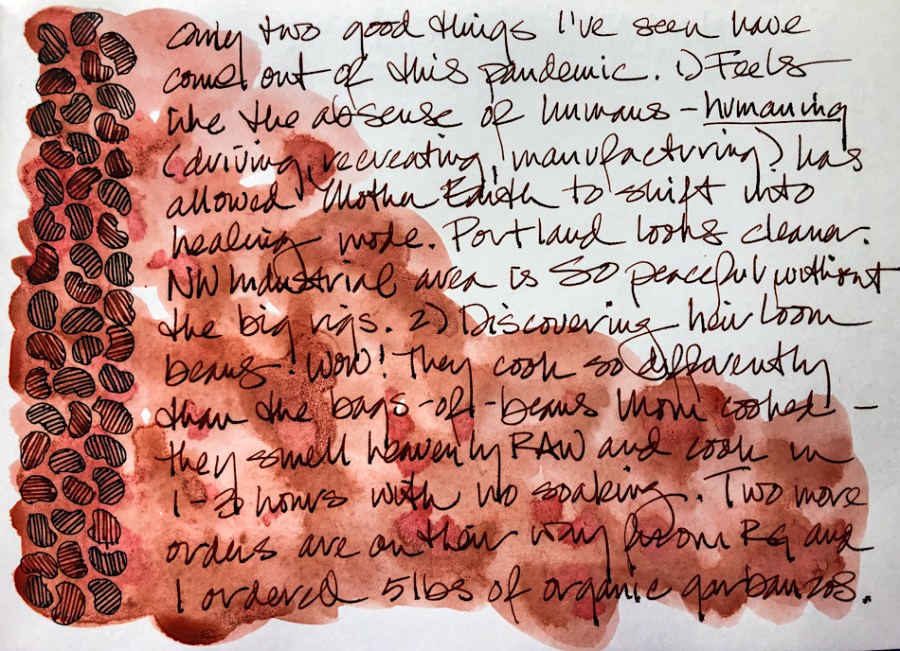 Only two good things I've seen have
come out of this pandemic. 1) Feels
like the absense of humans - humaning
(driving, recreating, manufacturing) has
allowed Mother Earth to shift into
healing mode. Portland looks cleaner.
NW Industrial area is SO peaceful without
the big rigs. 2) Discovering heirloom
beans! Wow! They cook so differently
than the bags-of-beans Mom cooked -
they smell heavenly RAW and cook in
1-2 hours with no soaking. Two more
orders are on their way from RG and
I ordered 5 lbs of organic garbanzos.